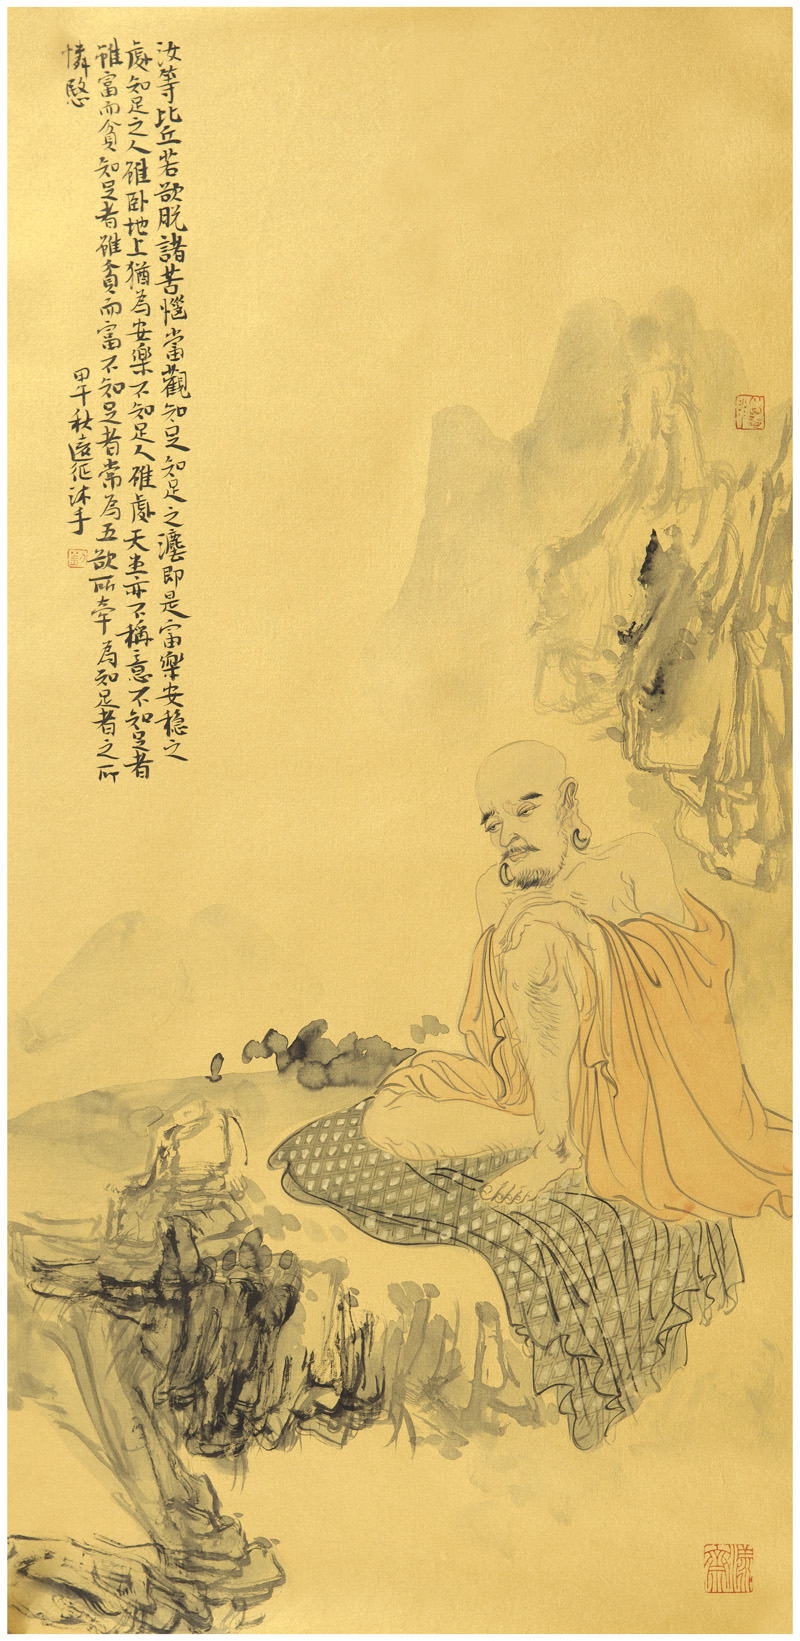 汝等比丘若欲脱諸苦惱當觀知足知足之灋即是富樂安穏之
處知足之人雖卧地上猶為安樂不知足人雖處天堂亦不稱意不知足者
雖富而貧知足者雖貧而富不知足者常為五欲所牽為知足者之所
憐愍
甲午秋遠征沐手